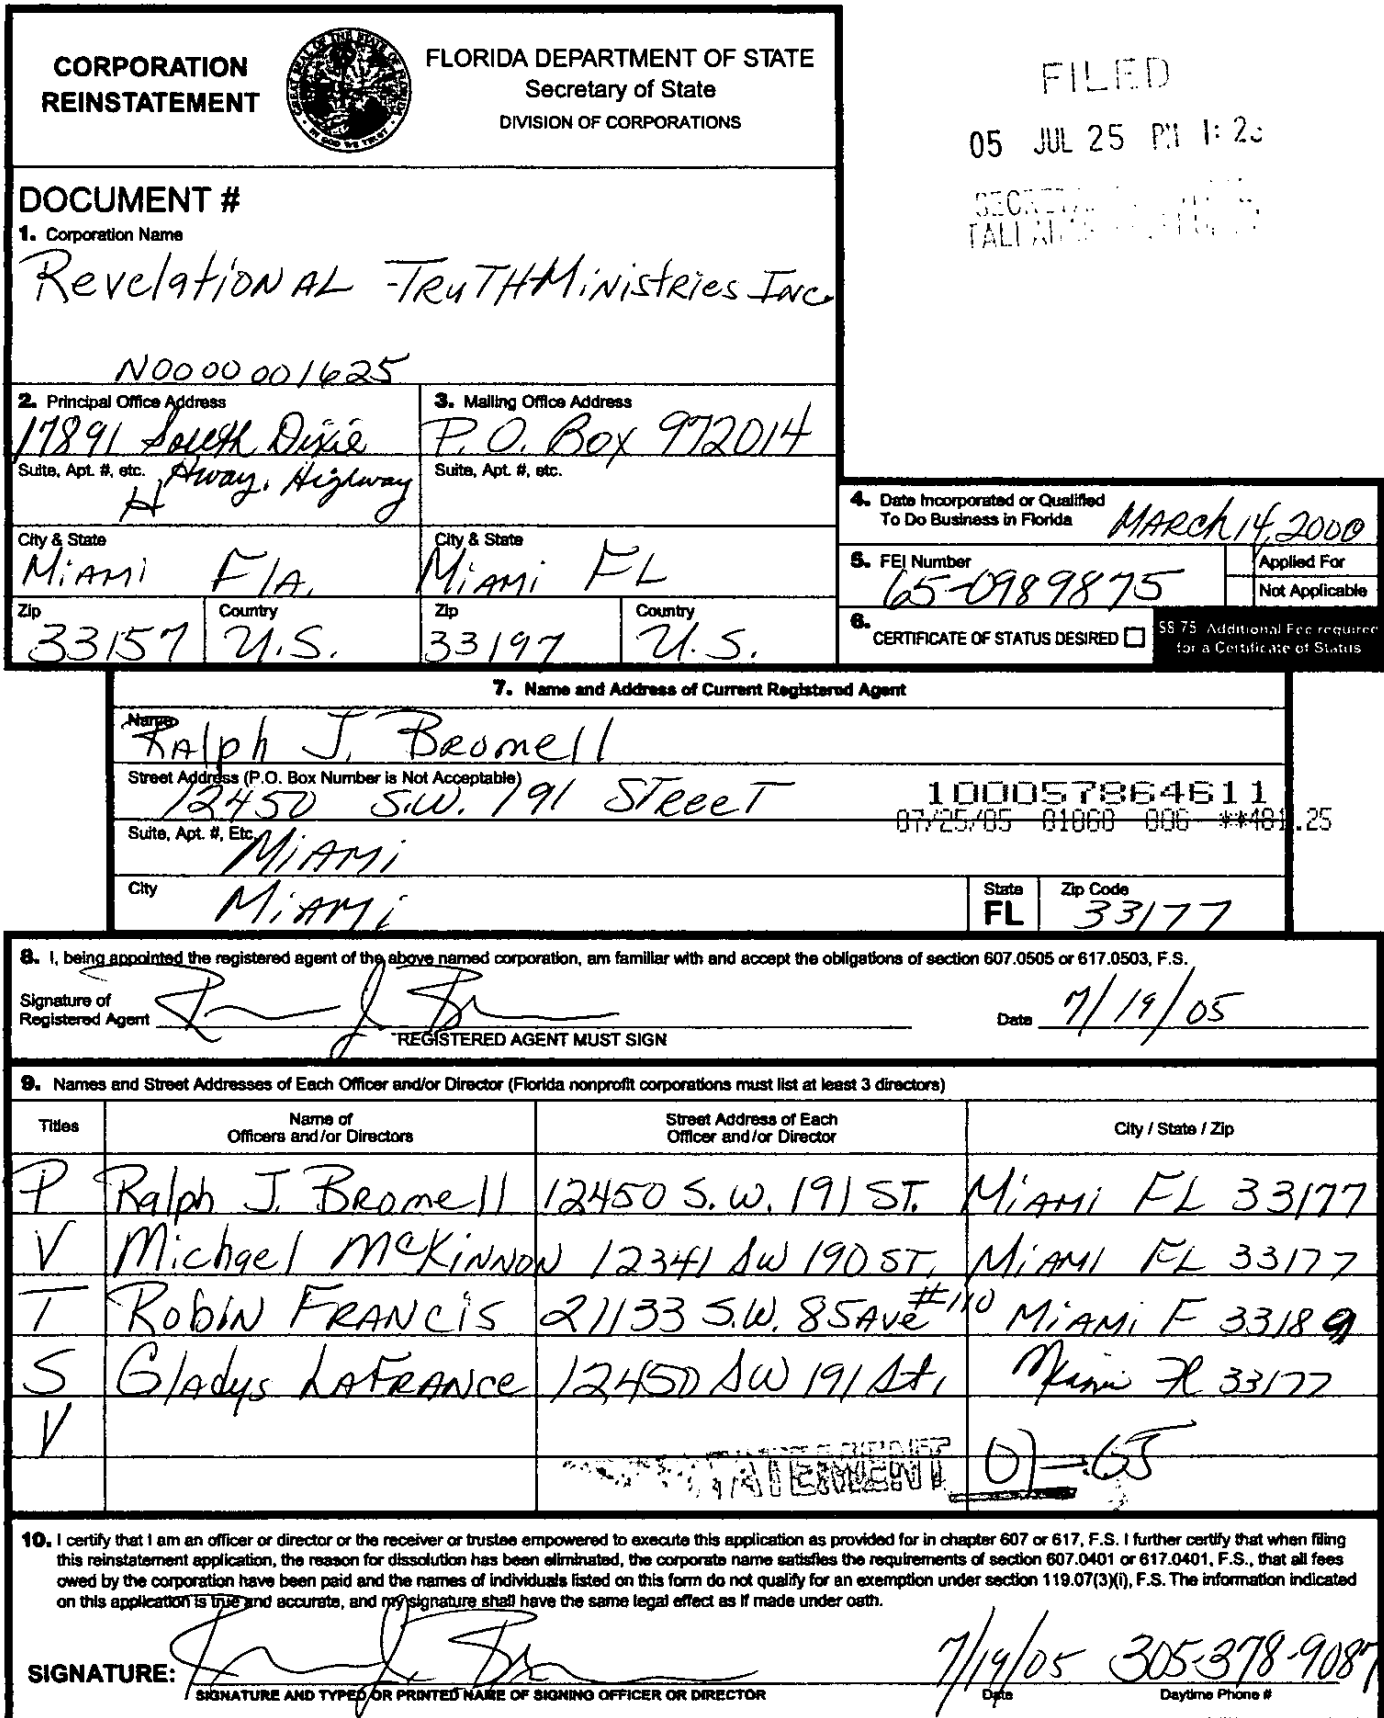 CORPORATION
REINSTATEMENT
FLORIDA DEPARTMENT OF STATE
Secretary of State
DIVISION OF CORPORATIONS
FILED
05 JUL 25 PM 1:2
DOCUMENT #
1. Corporation Name
Revelational Truth Ministries Inc
N00000001625
2. Principal Office Address
17891 South Dixie
Suite, Apt. #, etc. Hway. Highway
City & State
Miami Fla.
Zip Country
33157 U.S.
3. Mailing Office Address
P.O. Box 972014
Suite, Apt. #, etc.
City & State
Miami FL
Zip Country
33197 U.S.
4. Date Incorporated or Qualified
To Do Business in Florida March 14, 2000
5. FEI Number
65-0989875
Applied For
Not Applicable
6. CERTIFICATE OF STATUS DESIRED
$8.75 Additional Fee required
for a Certificate of Status
7. Name and Address of Current Registered Agent
Name
Ralph J. Bromell
Street Address (P.O. Box Number is Not Acceptable)
12450 S.W. 191 Street
100057864611
07/25/05 01060 006 **481.25
Suite, Apt. #, Etc.
Miami
City Miami
State FL
Zip Code 33177
8. I, being appointed the registered agent of the above named corporation, am familiar with and accept the obligations of section 607.0505 or 617.0503, F.S.
Signature of
Registered Agent
Date 7/19/05
REGISTERED AGENT MUST SIGN
9. Names and Street Addresses of Each Officer and/or Director (Florida nonprofit corporations must list at least 3 directors)
Titles
Name of
Officers and/or Directors
Street Address of Each
Officer and/or Director
City / State / Zip
P Ralph J. Bromell 12450 S.W. 191 ST. Miami FL 33177
V Michael McKinnon 12341 SW 190 ST, Miami FL 33177
T Robin Francis 21133 S.W. 85 Ave #110 Miami F 33189
S Gladys LaFrance 12450 SW 191 St, Miami Fl 33177
V
10. I certify that I am an officer or director or the receiver or trustee empowered to execute this application as provided for in chapter 607 or 617, F.S. I further certify that when filing
this reinstatement application, the reason for dissolution has been eliminated, the corporate name satisfies the requirements of section 607.0401 or 617.0401, F.S., that all fees
owed by the corporation have been paid and the names of individuals listed on this form do not qualify for an exemption under section 119.07(3)(i), F.S. The information indicated
on this application is true and accurate, and my signature shall have the same legal effect as if made under oath.
SIGNATURE:
7/19/05 305-378-9087
SIGNATURE AND TYPED OR PRINTED NAME OF SIGNING OFFICER OR DIRECTOR
Date
Daytime Phone #